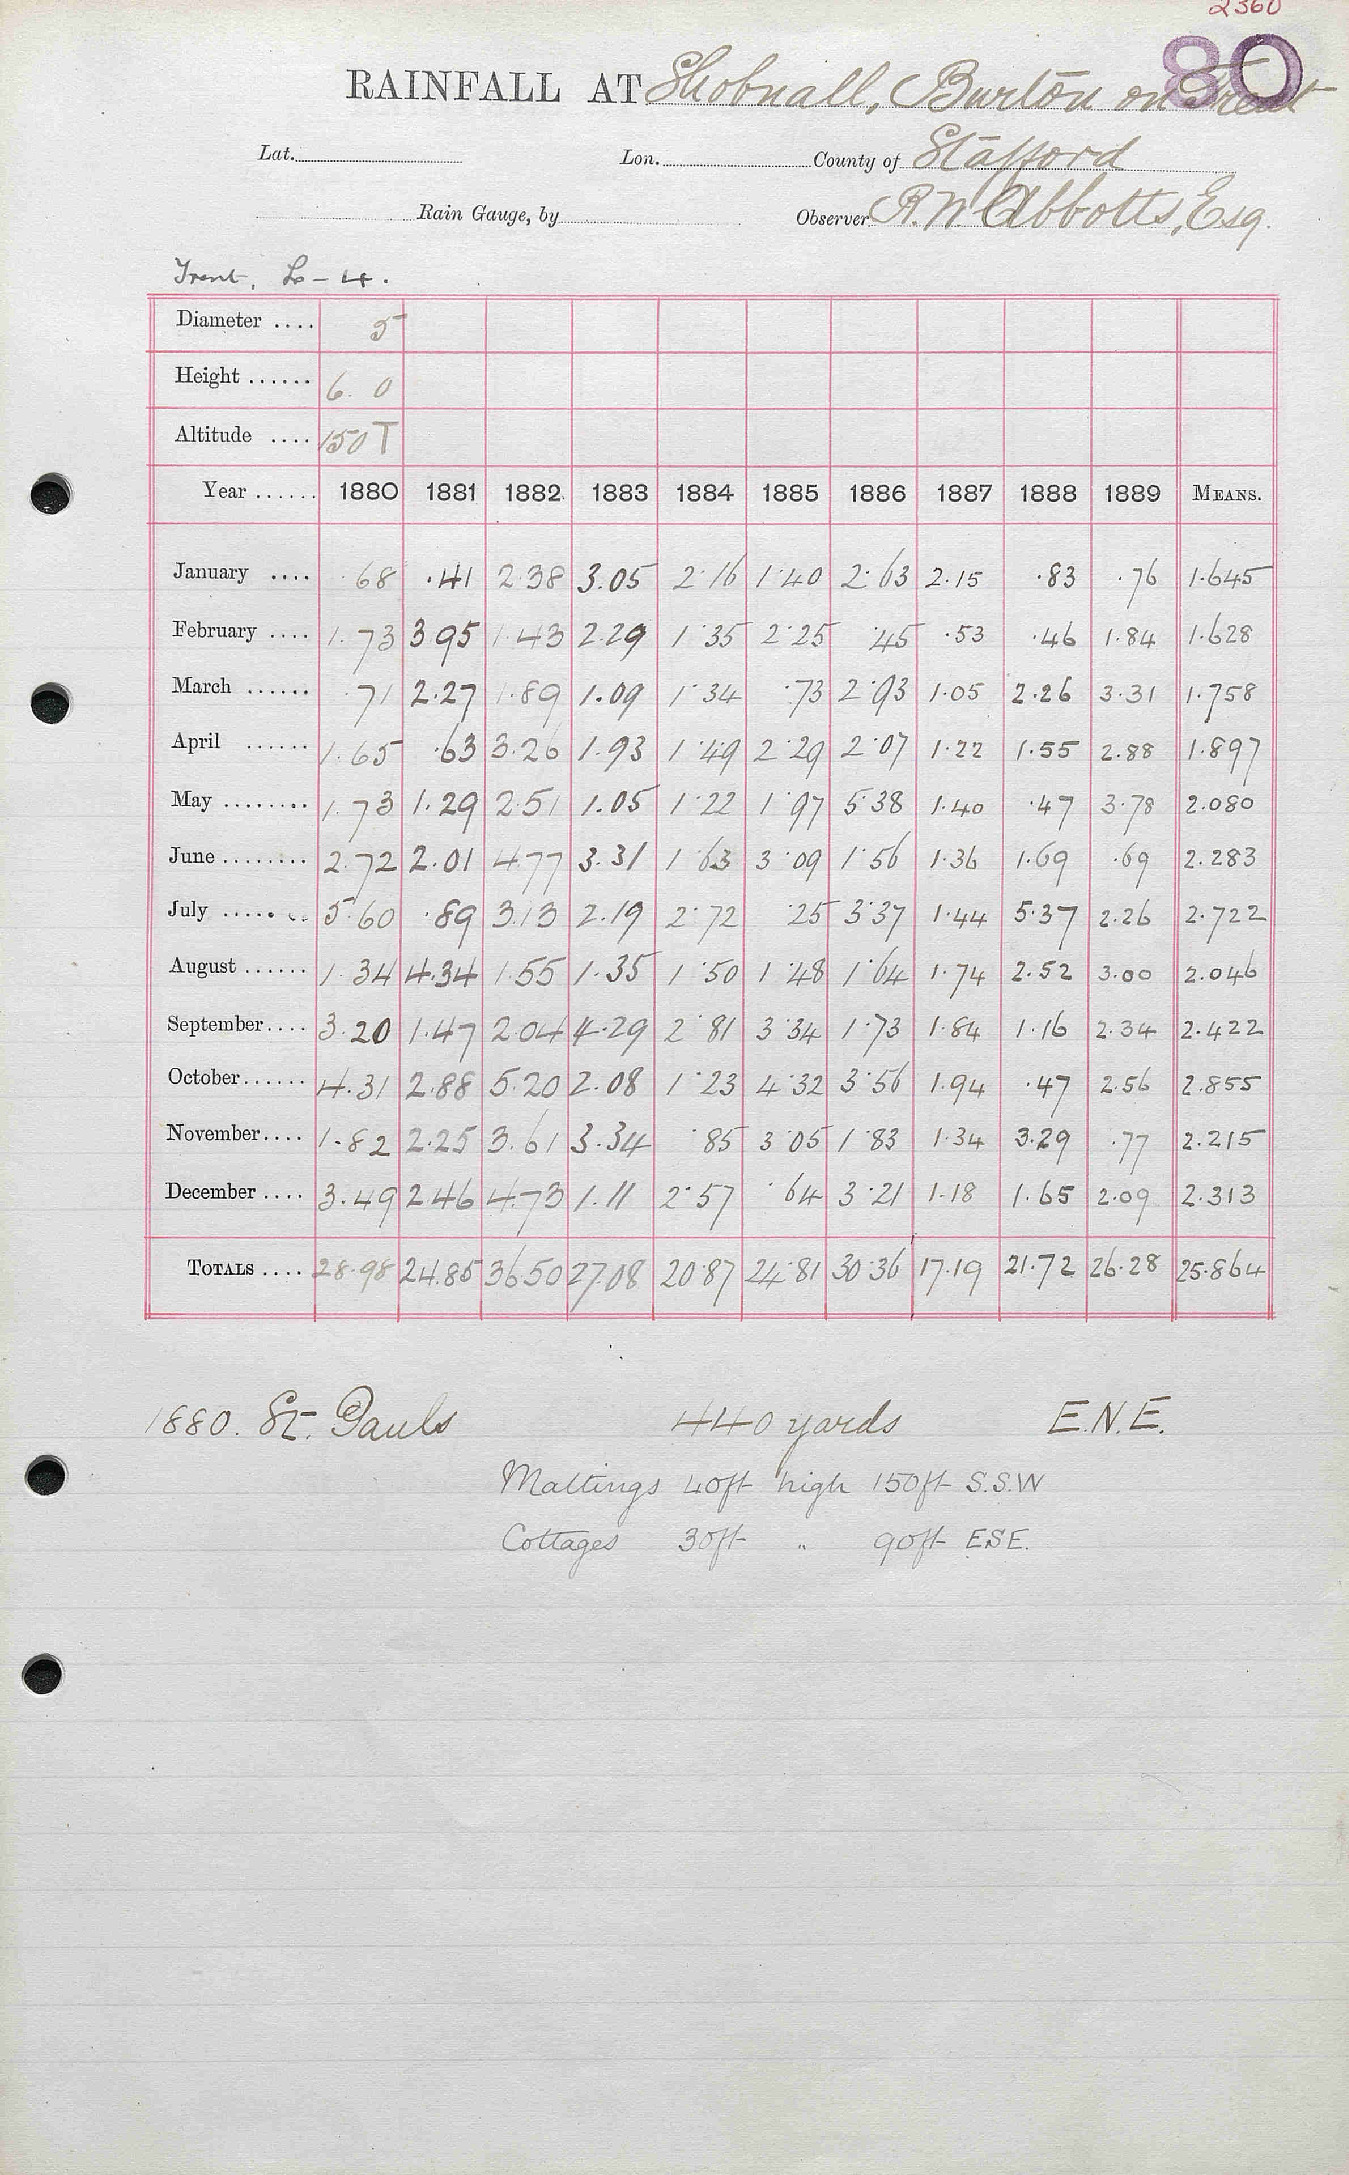 2360
80
RAINFALL AT Shobnall, Burton on Trent
Lat. Lon. County of Stafford
Rain Gauge, by Observer R. W. Abbotts, Esq.
Trent, L-4.
Diameter .... 5
Height ...... 6. 0
Altitude .... 150 T
Year ...... 1880 1881 1882 1883 1884 1885 1886 1887 1888 1889 MEANS.
January .... .68 .41 2.38 3.05 2.16 1.40 2.63 2.15 .83 .76 1.645
February .... 1.73 3.95 1.43 2.29 1.35 2.25 .45 .53 .46 1.84 1.628
March ...... .71 2.27 1.89 1.09 1.34 .73 2.93 1.05 2.26 3.31 1.758
April ...... 1.65 .63 3.26 1.93 1.49 2.29 2.07 1.22 1.55 2.88 1.897
May ........ 1.73 1.29 2.51 1.05 1.22 1.97 5.38 1.40 .47 3.78 2.080
June ........ 2.72 2.01 4.77 3.31 1.63 3.09 1.56 1.36 1.69 .69 2.283
July ........ 5.60 .89 3.13 2.19 2.72 .25 3.37 1.44 5.37 2.26 2.722
August ...... 1.34 4.34 1.55 1.35 1.50 1.48 1.64 1.74 2.52 3.00 2.046
September.... 3.20 1.47 2.04 4.29 2.81 3.34 1.73 1.84 1.16 2.34 2.422
October...... 4.31 2.88 5.20 2.08 1.23 4.32 3.56 1.94 .47 2.56 2.855
November.... 1.82 2.25 3.61 3.34 .85 3.05 1.83 1.34 3.29 .77 2.215
December .... 3.49 2.46 4.73 1.11 2.57 .64 3.21 1.18 1.65 2.09 2.313
TOTALS .... 28.98 24.85 36.50 27.08 20.87 24.81 30.36 17.19 21.72 26.28 25.864
1880. St. Pauls 440 yards E.N.E.
Maltings 40ft high 150ft S.S.W
Cottages 30ft " 90ft E.S.E.